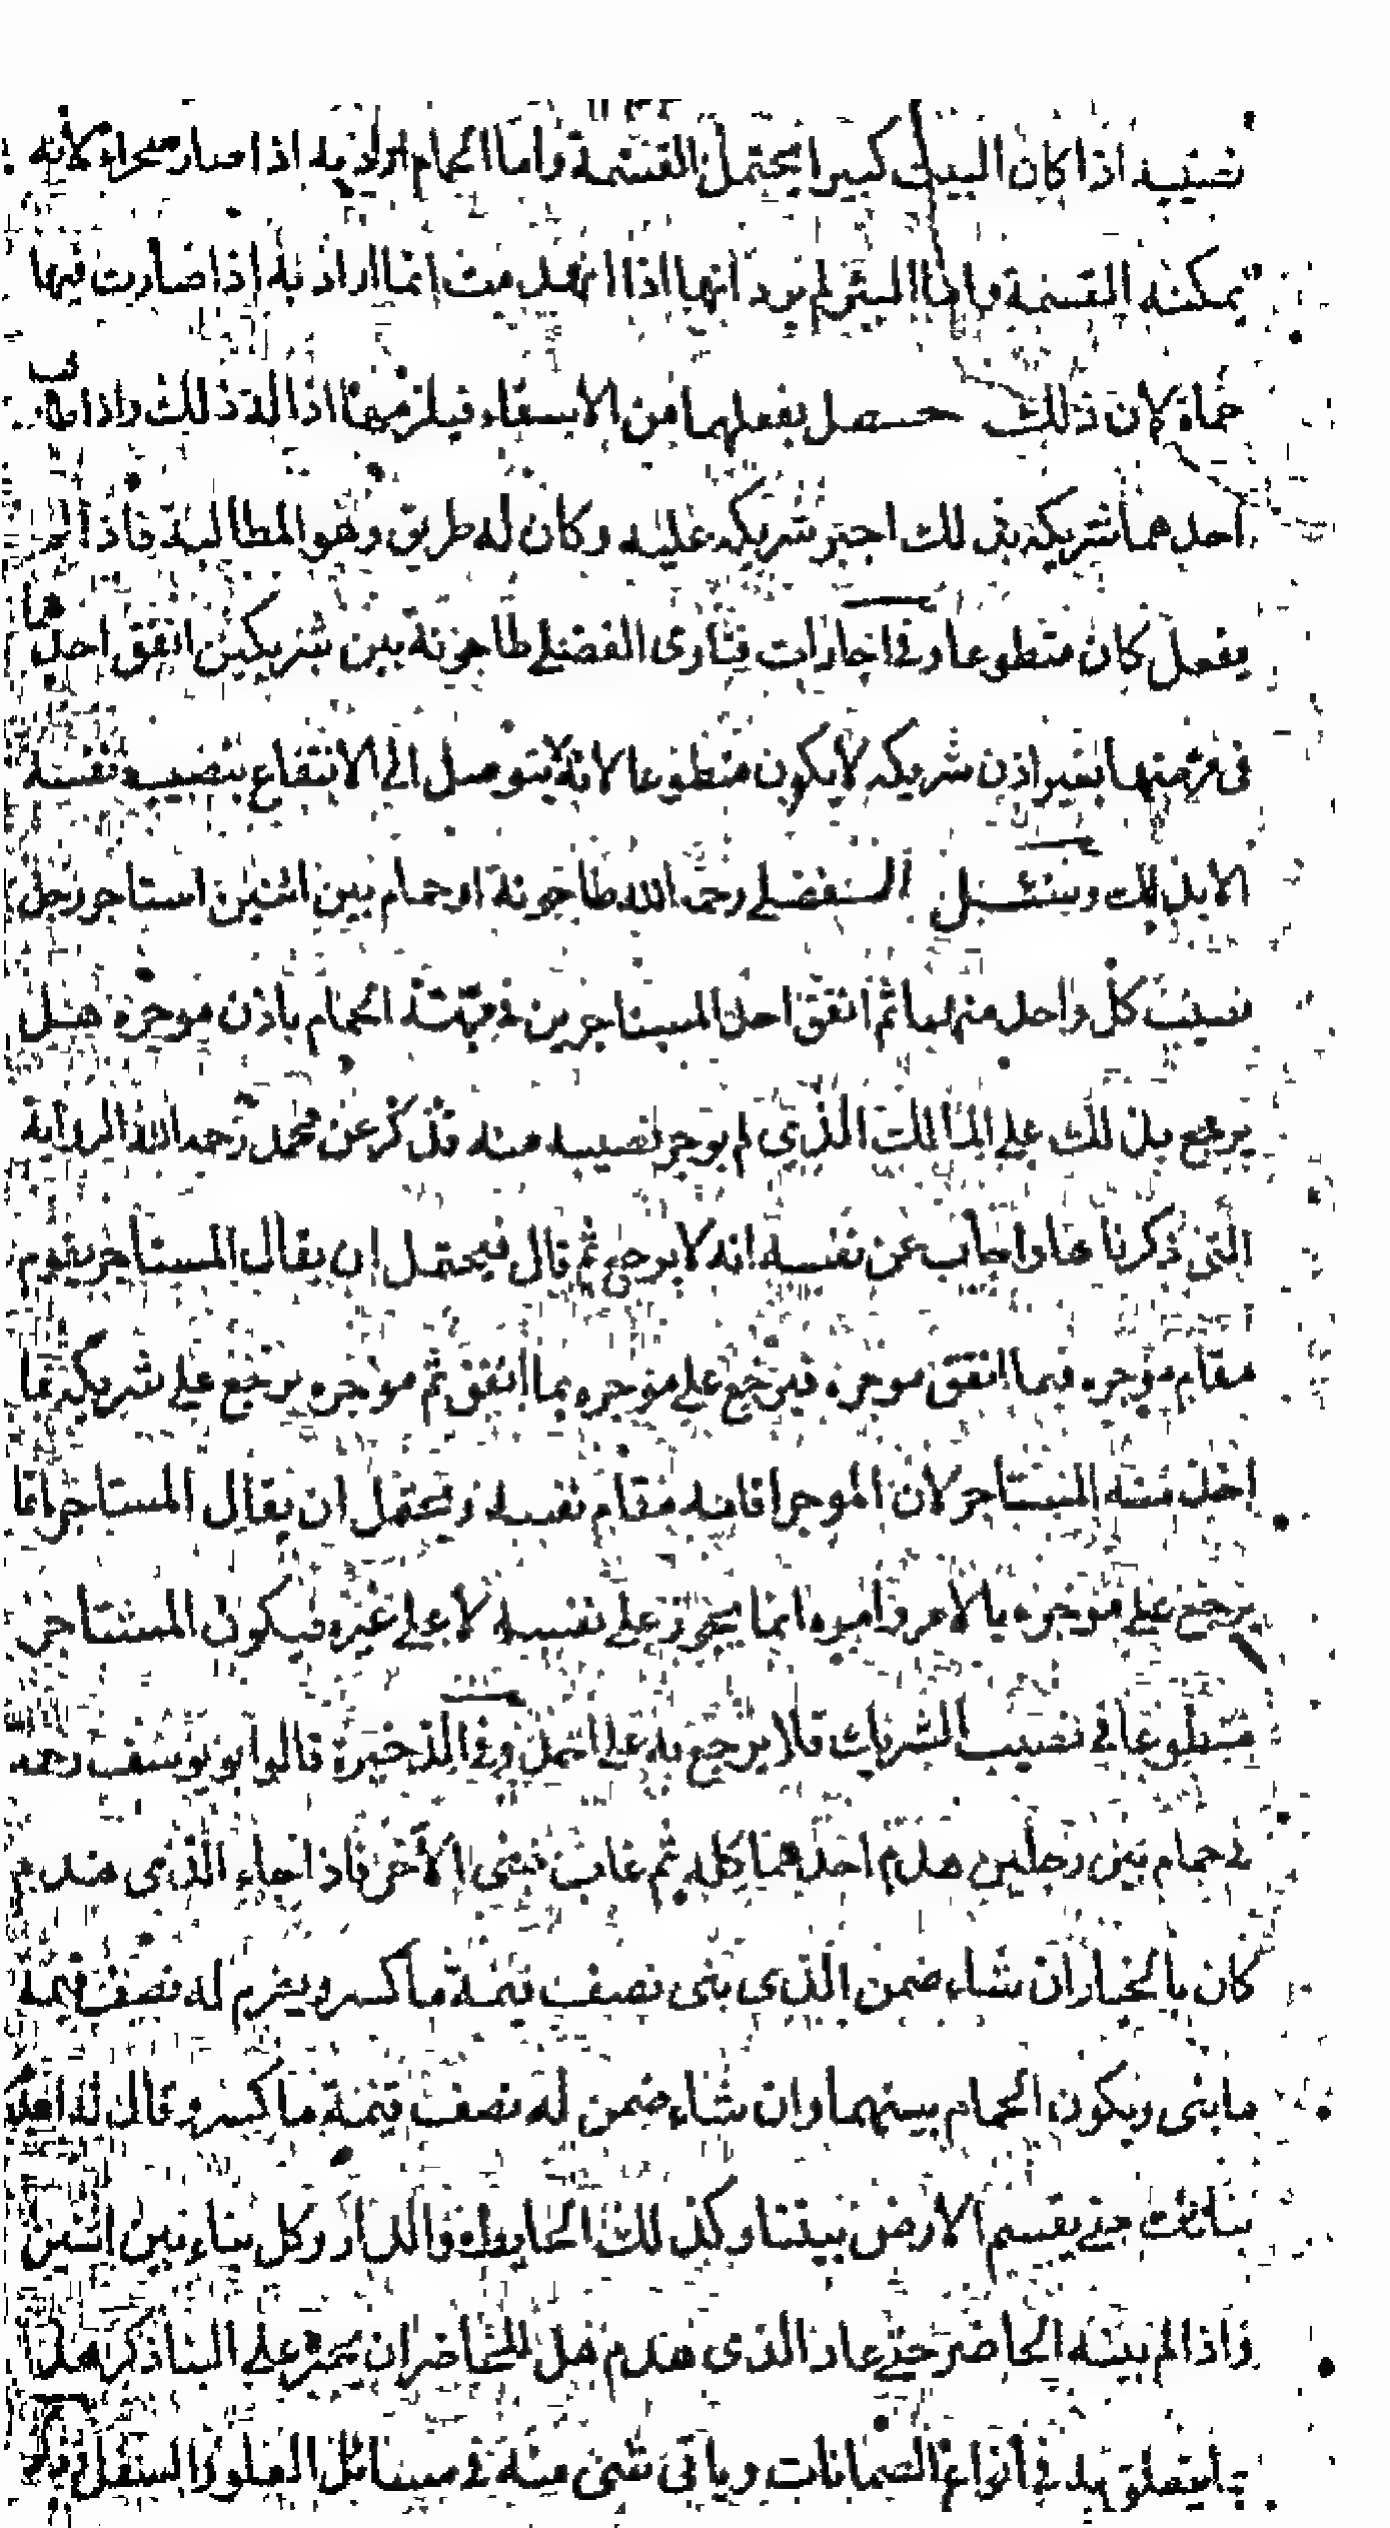 نصيبه اذا كان البيت كبيرا يحتمل القسمة واما الحمام اراد به اذا صار صحراء لانه
يمكنه القسمة واما البئر لم يرد انها اذا انهدمت انما اراد به اذا صارت فيها
حماة كان ذلك حصل بفعلهما من الاستقاء فيلزمهما ازالة ذلك واذا طالب
احدهما شريكه بذلك اجبر شريكه عليه وكان له طريق وهو المطالبة فاذا لم
يفعل كان متطوعا وفي اجارات فتاوى الفضلي طاحونة بين شريكين انفق احدهما
في مرمتها بغير اذن شريكه لا يكون متطوعا لانه لا يتوصل الى الانتفاع بنصيب نفسه
الا بذلك وسئل الفضلي رحمه الله طاحونة او حمام بين اثنين استاجر رجل
نصيب كل واحد منهما ثم انفق احد المستاجرين في مرمة الحمام باذن موجره هل
يرجع بذلك على المالك الذي لم يوجر نصيبه منه فذكر عن محمد رحمه الله الرواية
التي ذكرناها واجاب عن نفسه انه لا يرجع ثم قال فيحتمل ان يقال المستاجر يقوم
مقام موجره فيما انفق موجره فيرجع على موجره بما انفق ثم موجره يرجع على شريكه بما
اخذ منه المستاجر لان الموجر اقامه مقام نفسه ويحتمل ان يقال المستاجر انما
يرجع على موجره بالامر وامره انما يجوز على نفسه لا على غيره فيكون المستاجر
متطوعا في نصيب الشريك فلا يرجع به على احد وفي الذخيرة قال ابو يوسف رحمه
في حمام بين رجلين هدم احدهما كله ثم غاب فبنى الاخر فاذا جاء الذي هدم
كان بالخيار ان شاء ضمن الذي بنى نصف قيمة ما كسر ويغرم له نصف قيمة
ما بنى ويكون الحمام بينهما وان شاء ضمن له نصف قيمة ما كسر وقال له اهدم
بناءك حتى يقسم الارض بيننا وكذلك الحايط والدار وكل بناء بين اثنين
واذا لم يبنه الحاضر حتى عاد الذي هدم هل للحاضر ان يجبر على البنا ذكر
ما يتعلق به في انواع الضمانات وياتي شي منه في مسائل العلو والسفل